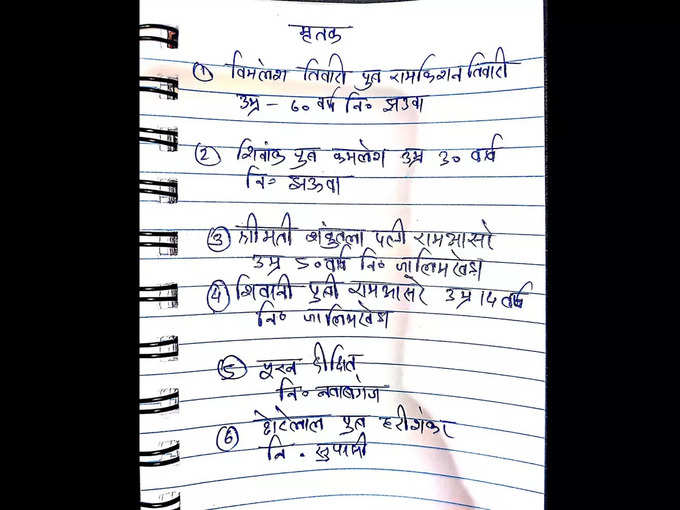 मृतक
① विमलेश तिवारी पुत्र रामकिशन तिवारी
उम्र - 60 वर्ष नि० झउवा
② शिवांक पुत्र कमलेश उम्र 30 वर्ष
नि० झऊवा
③ श्रीमती शंकुतला पत्नी रामआसरे
उम्र 50 वर्ष नि० जालिमखेडा
④ शिवानी पुत्री रामआसरे उम्र 14 वर्ष
नि० जालिमखेडा
⑤ पूरन दीक्षित
नि० नवाबगंज
⑥ छोटेलाल पुत्र
नि .